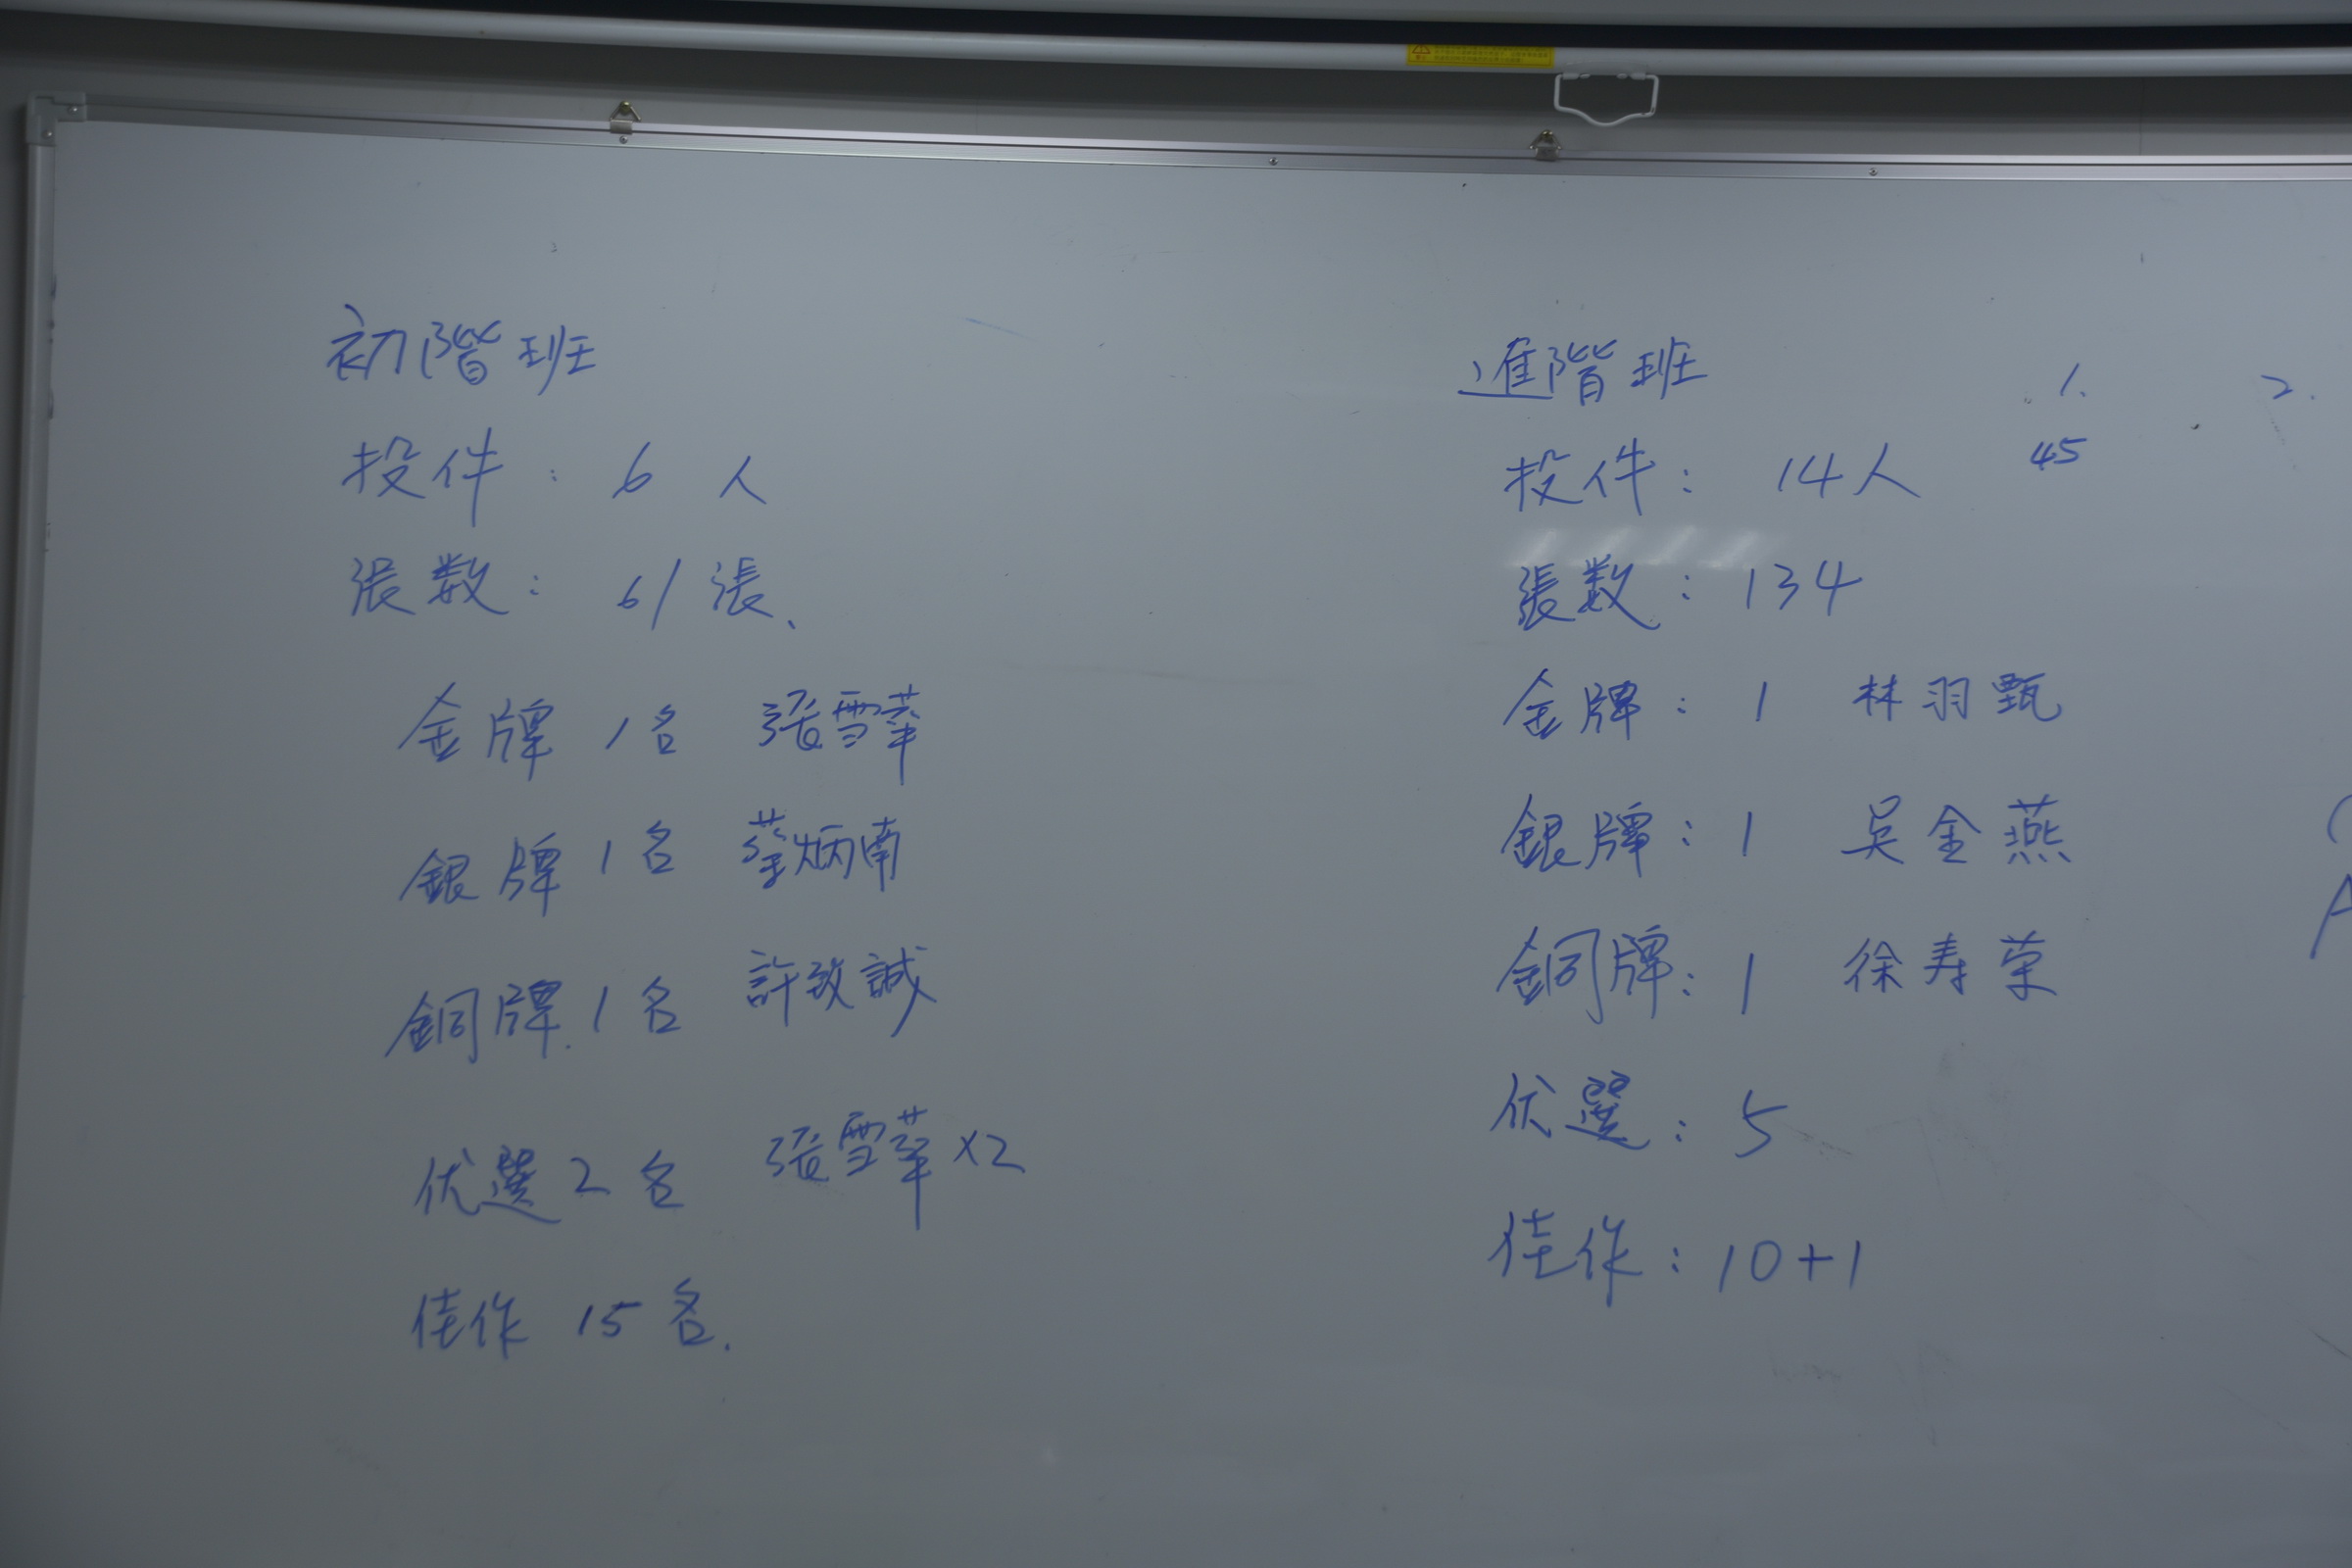 初階班
投件：6 人
張数：61 張、
金牌 1名 張雪華
銀牌 1名 蔡炳南
銅牌.1名 許致誠
优選 2 名 張雪華 x2
佳作 15 名.
進階班
投件：14人
張数：134
金牌：1 林羽甄
銀牌：1 吳金燕
銅牌：1 徐寿荣
优選：5
佳作：10+1
1. 2.
45